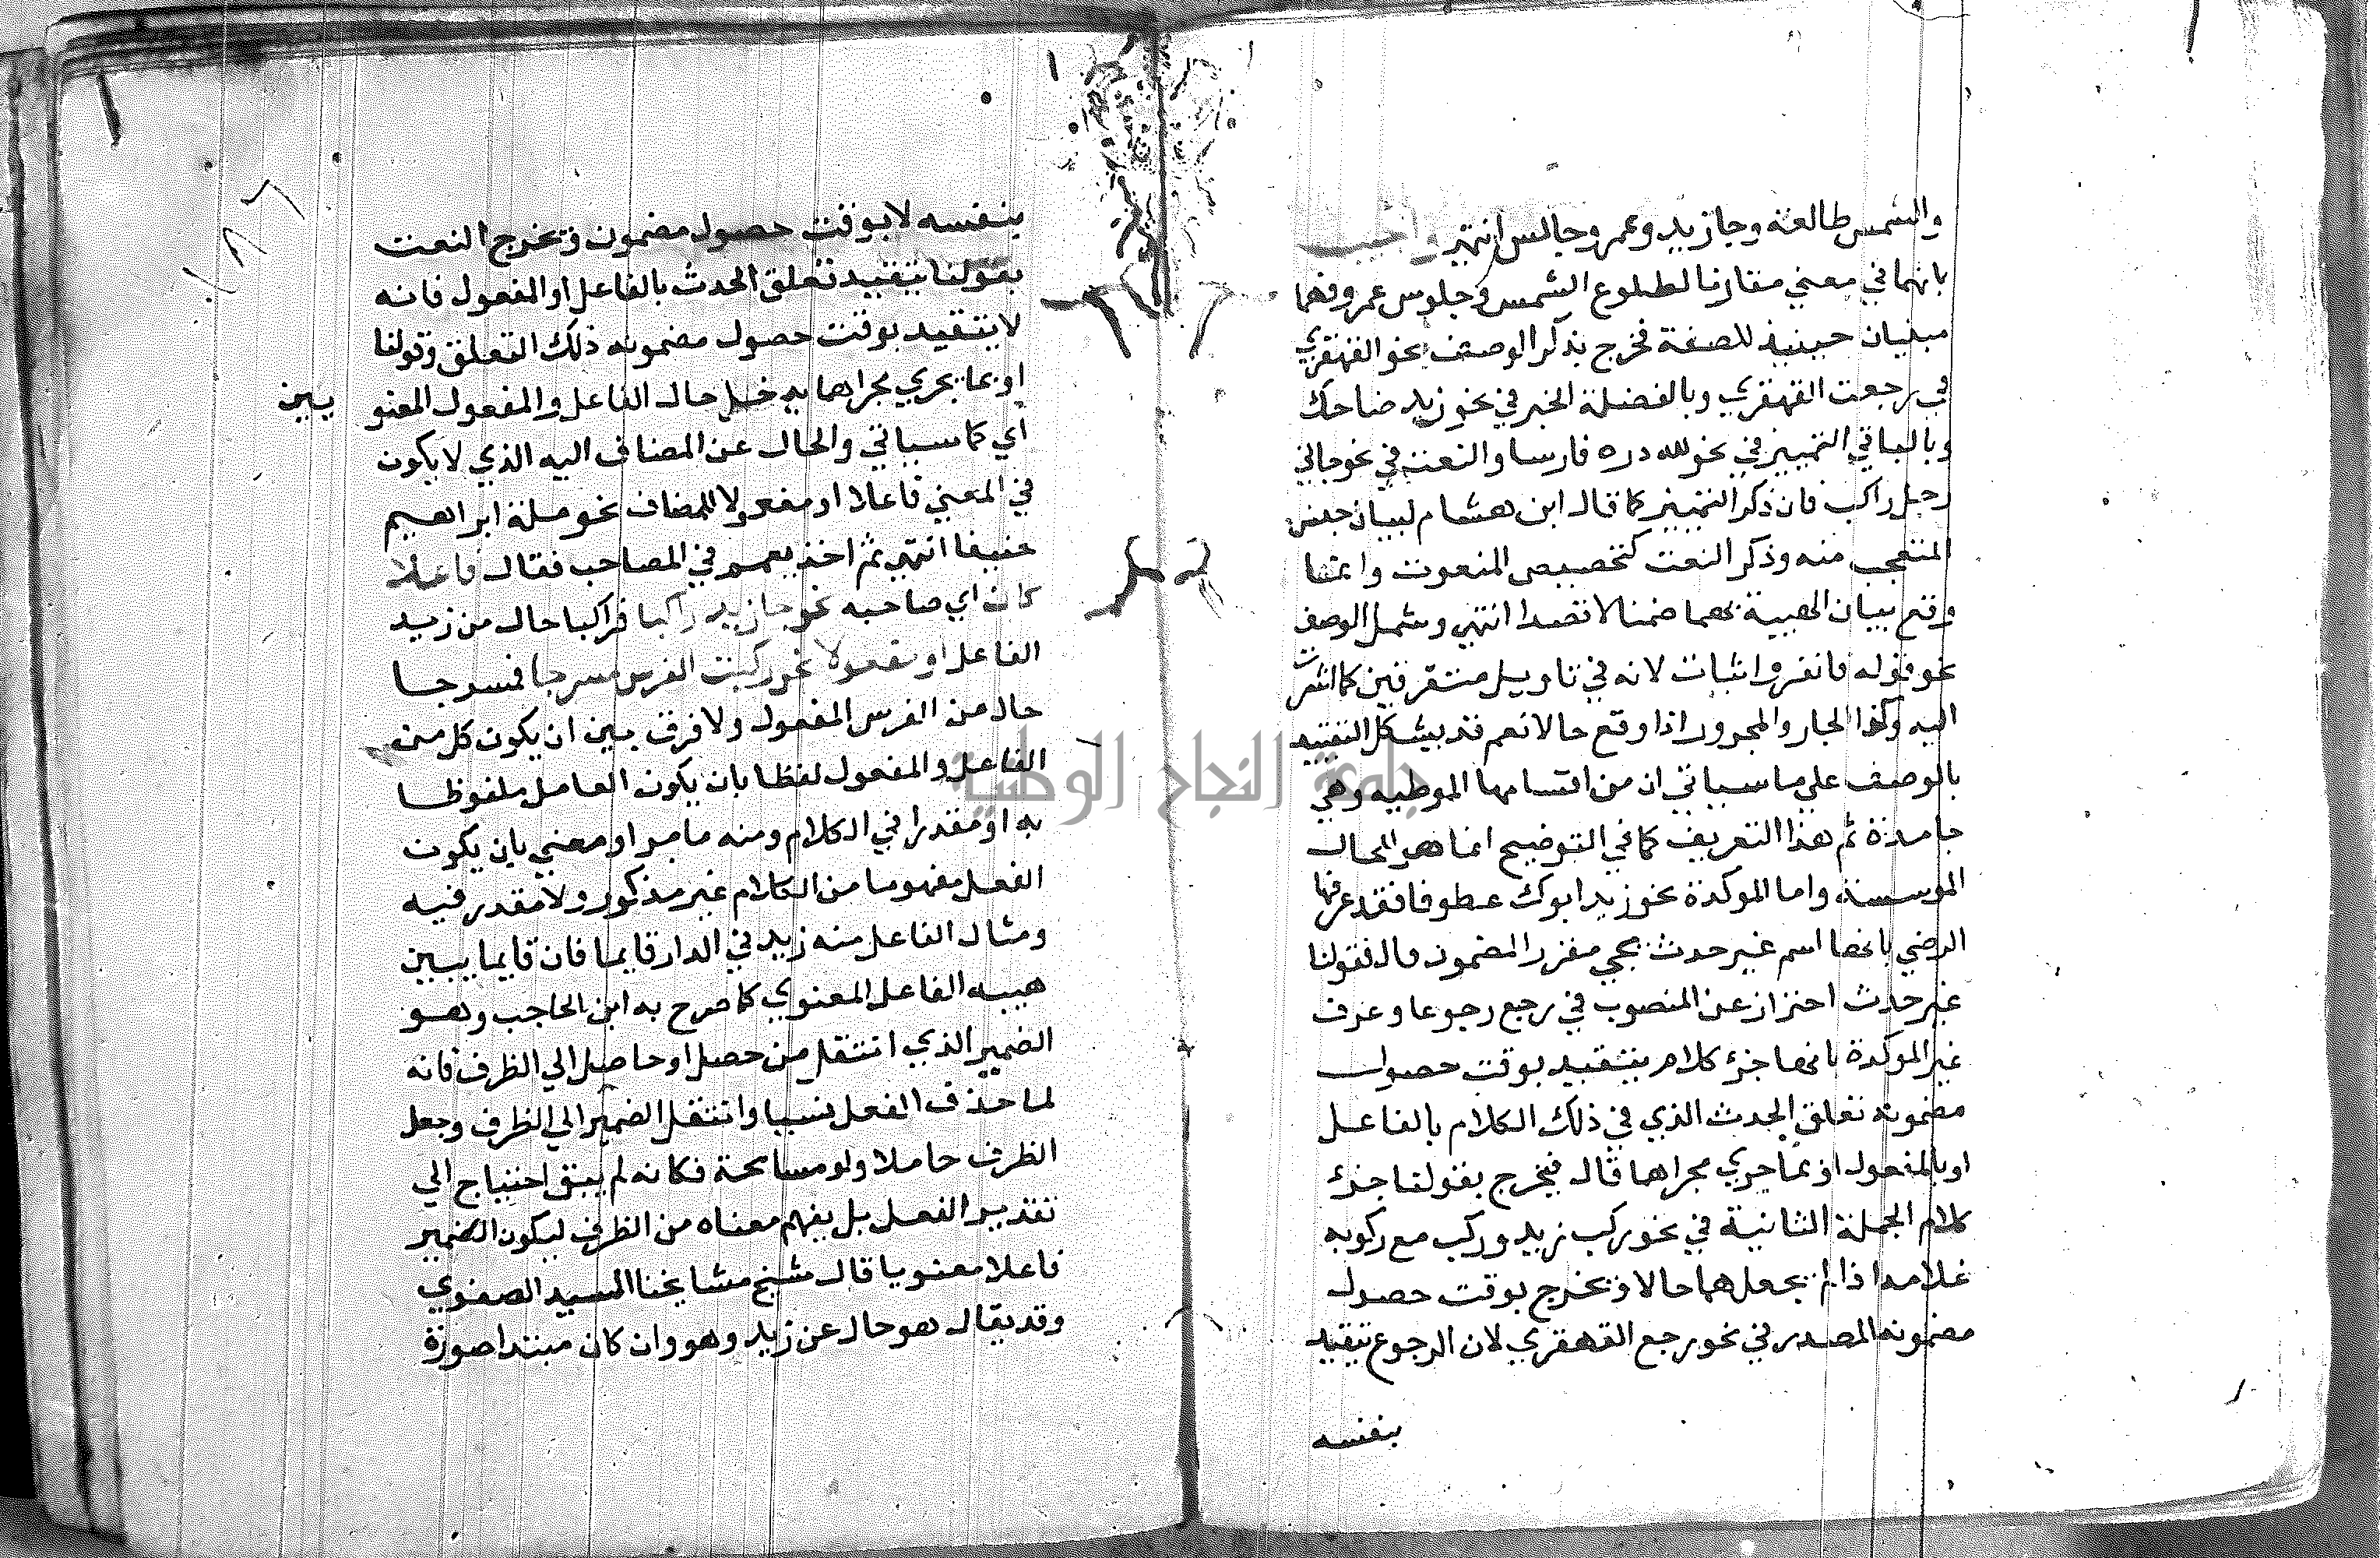 والشمس طالعة وجا زيد وعمرو جالس انتهي واجيب
بانهما في معني مقارنا لطلوع الشمس وجلوس عمرو فهما
مبنيان حينيذ للصفة فخرج بذكر الوصف نحو القهقري
في رجعت القهقري وبالفضلة الخبر في نحو زيد ضاحك
وبالباقي التمييز في نحو لله دره فارسا والنعت في نحو جاني
رجل راكب فان ذكر التمييز كما قال ابن هشام لبيان جنس
المتعجب منه وذكر النعت لتخصيص المنعوت وانما
وقع بيان الهيية بهما ضمنا لا قصدا انتهي وشمل الوصف
نحو قوله فانفروا ثبات لانه في تاويل متفرقين كما اشرت
اليه وكذا الجار والمجرور اذا وقع حالا نعم قد يشكل التقييد
بالوصف علي ما سياتي ان من اقسامها الموطيه وهي
جامدة ثم هذا التعريف كما في التوضيح انما هو للحال
الموسسة واما الموكدة نحو زيد ابوك عطوفا فقد عرفها
الرضي بانها اسم غير حدث يجي مقررا لمضمون قال فقولنا
غير حدث احتراز عن المنصوب في رجع رجوعا وعرف
غير الموكدة بانها جزء كلام يتقيد بوقت حصول
مضمونه تعلق الحدث الذي في ذلك الكلام بالفاعل
او بالمفعول او بما جري مجراها قال فيخرج بقولنا جزء
كلام الجملة الثانية في نحو ركب زيد وركب مع ركوبه
غلامه اذا لم يجعلهما حالا ويخرج بوقت حصول
مضمونه المصدر في نحو رجع القهقري لان الرجوع يتقيد
بنفسه
١٨٦
بنفسه لا بوقت حصول مضمون ويخرج النعت
بقولنا يتقيد تعلق الحدث بالفاعل او المفعول فانه
لا يتقيد بوقت حصول مضمونه ذلك التعلق وقولنا
او بما يجري مجراهما يدخل حال الفاعل والمفعول المعنو
يين
اي كما سياتي والحال عن المضاف اليه الذي لا يكون
في المعني فاعلا او مفعولا للمضاف نحو ملة ابراهيم
حنيفا انتهي ثم اخذ يعمم في المصاحب فقال فاعلا
كان اي صاحبه نحو جا زيد راكبا فراكبا حال من زيد
الفاعل او مفعولا نحو ركبت الفرس مسرجا فمسرجا
حال من الفرس المفعول ولا فرق بين ان يكون كل من
الفاعل والمفعول لفظا بان يكون العامل ملفوظا
به او مقدرا في الكلام ومنه ما مر او معني بان يكون
الفعل مفهوما من الكلام غير مذكور ولا مقدر فيه
ومثال الفاعل منه زيد في الدار قايما فان قايما يبين
هيية الفاعل المعنوي كما صرح به ابن الحاجب وهو
الضمير الذي انتقل من حصل او حاصل الي الظرف فانه
لما حذف الفعل نسيا وانتقل الضمير الي الظرف وجعل
الظرف حاملا ولو مسامحة فكانه لم يبق احتياج الي
تقدير الفعل بل يفهم معناه من الظرف ليكون الضمير
فاعلا معنويا قال شيخ مشايخنا السيد الصفوي
وقد يقال هو حال عن زيد وهو وان كان مبتدا صورة
جامعة النجاح الوطنية